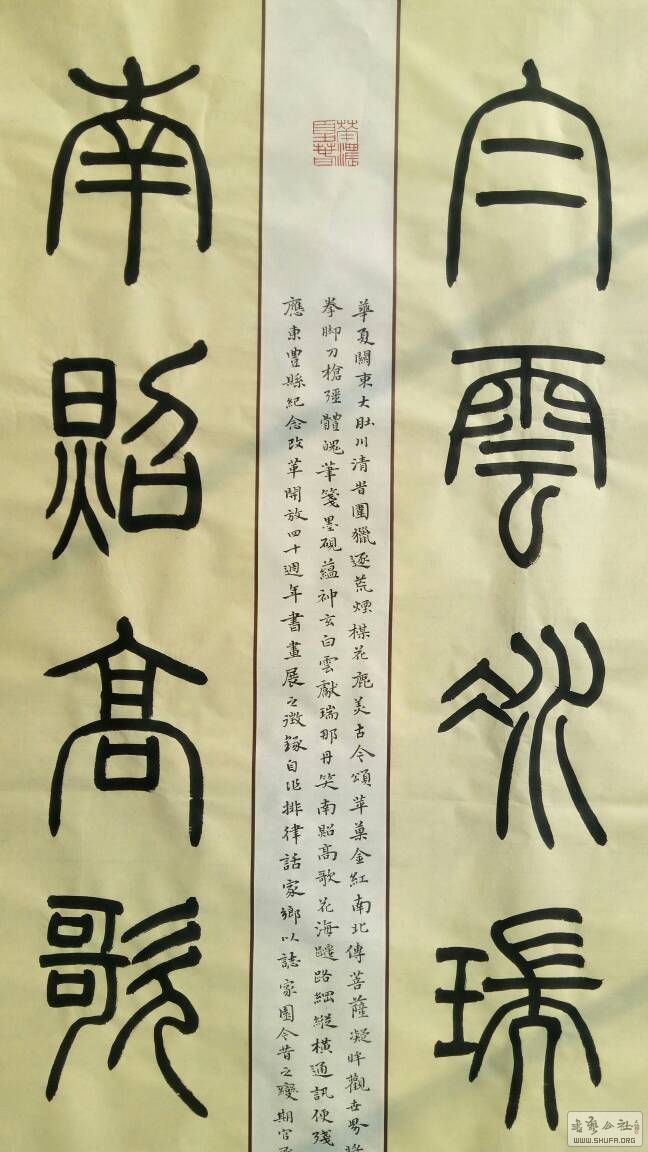 白雲瑞
華夏關東大肚川清昔圍獵逐荒煙楳花鹿美古今頌苹菓金紅南北傳菩薩凝眸觀世界
拳脚刀槍彊體魄筆箋墨硯蘊神玄白雲獻瑞那丹笑南照高歌花海躚路網縱橫通訊便殘
應東豐縣紀念改革開放四十週年書畫展之徵錄自作排律話家鄉以誌家園今昔之變期官
南照高歌
书艺公社
WWW.SHUFA.ORG